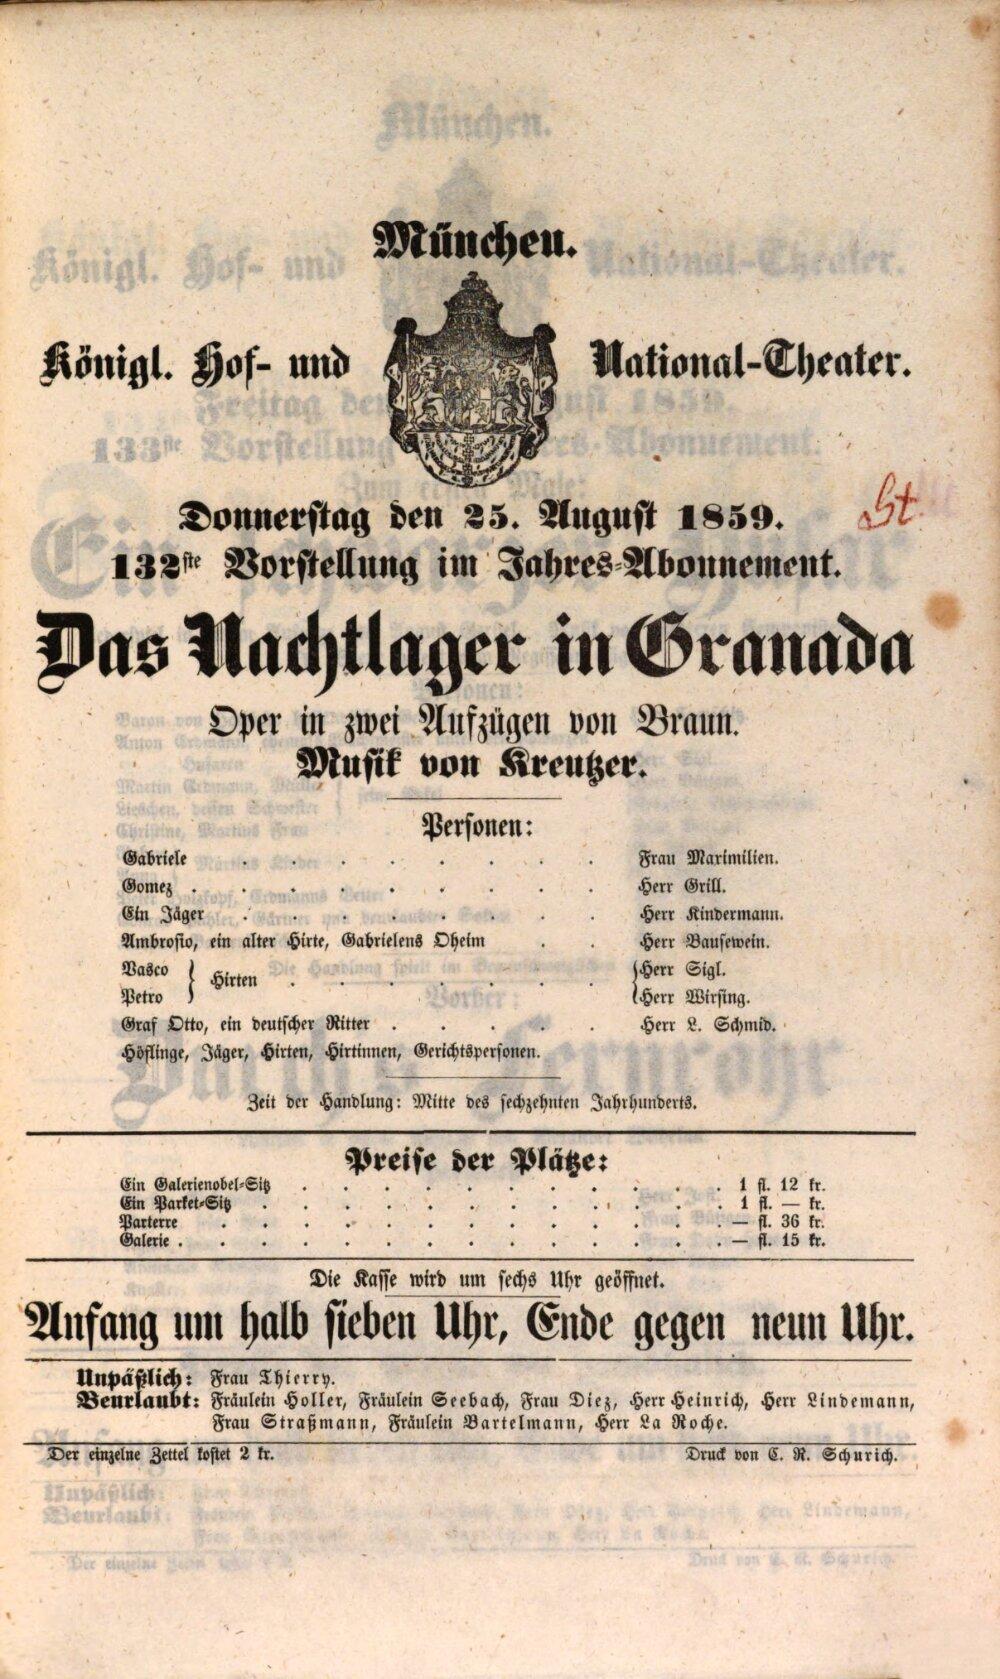 München.
Königl. Hof- und National-Theater.
Donnerstag den 25. August 1859.
St.
132ste Vorstellung im Jahres-Abonnement.
Das Nachtlager in Granada
Oper in zwei Aufzügen von Braun.
Musik von Kreutzer.
Personen:
Gabriele . . . . . . . . Frau Maximilien.
Gomez . . . . . . . . . Herr Grill.
Ein Jäger . . . . . . . . Herr Kindermann.
Ambrosio, ein alter Hirte, Gabrielens Oheim . . Herr Bausewein.
Vasco } Hirten . . . . . . . { Herr Sigl.
Petro } { Herr Wirsing.
Graf Otto, ein deutscher Ritter . . . . . Herr L. Schmid.
Höflinge, Jäger, Hirten, Hirtinnen, Gerichtspersonen.
Zeit der Handlung: Mitte des sechzehnten Jahrhunderts.
Preise der Plätze:
Ein Galerienobel-Sitz . . . . . . . . . . . 1 fl. 12 kr.
Ein Parket-Sitz . . . . . . . . . . . . 1 fl. — kr.
Parterre . . . . . . . . . . . . . — fl. 36 kr.
Galerie . . . . . . . . . . . . . . — fl. 15 kr.
Die Kasse wird um sechs Uhr geöffnet.
Anfang um halb sieben Uhr, Ende gegen neun Uhr.
Unpäßlich: Frau Thierry.
Beurlaubt: Fräulein Holler, Fräulein Seebach, Frau Diez, Herr Heinrich, Herr Lindemann,
Frau Straßmann, Fräulein Bartelmann, Herr La Roche.
Der einzelne Zettel kostet 2 kr. Druck von C. R. Schurich.